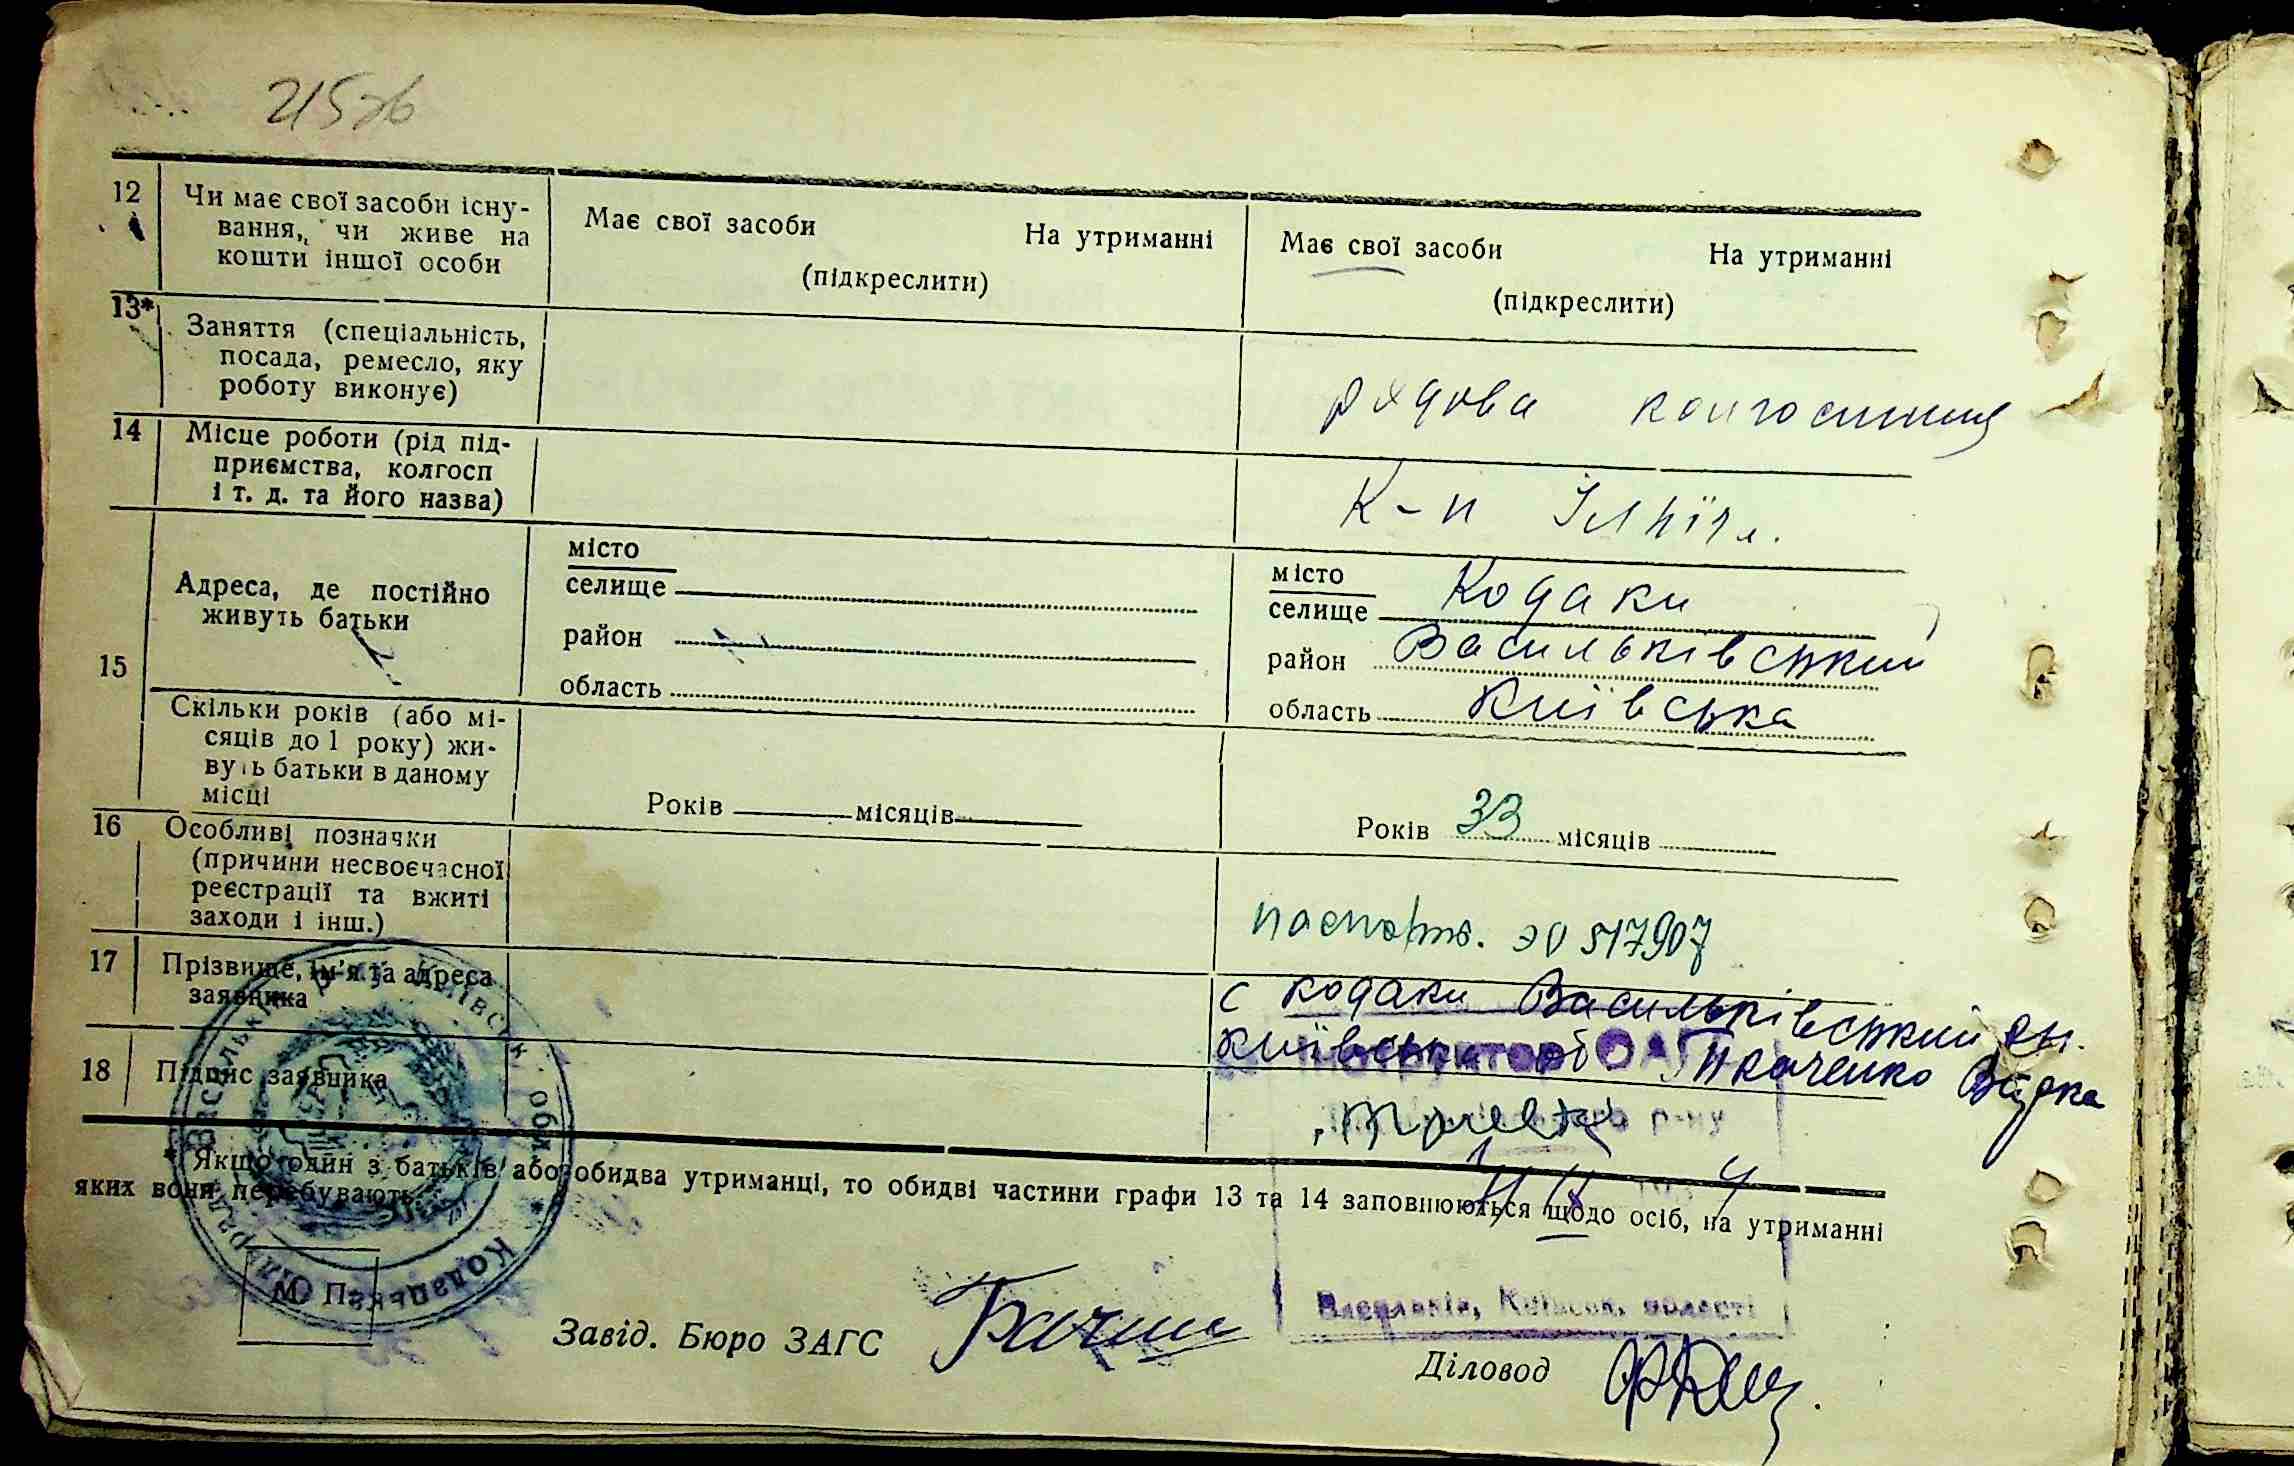 12 Чи має свої засоби існу-
вання, чи живе на
кошти іншої особи
Має свої засоби На утриманні
(підкреслити)
Має свої засоби На утриманні
(підкреслити)
13* Заняття (спеціальність,
посада, ремесло, яку
роботу виконує)
рядова колгоспниця
14 Місце роботи (рід під-
приємства, колгосп
і т. д. та його назва)
К-п
15
Адреса, де постійно
живуть батьки
місто
селище
район
область
місто
селище Кодаки
район Васильківський
область Київська
Скільки років (або мі-
сяців до 1 року) жи-
вуть батьки в даному
місці
Років місяців
Років 33 місяців
16 Особливі позначки
(причини несвоєчасної
реєстрації та вжиті
заходи і інш.)
паспорт. ЭО 517907
17 Прізвище, ім'я та адреса
заявника
с Кодаки Васильківський рн.
Київська об Ткаченко
18 Підпис заявника
* Якщо один з батьків або обидва утриманці, то обидві частини графи 13 та 14 заповнюються щодо осіб, на утриманні
яких вони перебувають.
М. П.
Завід. Бюро ЗАГС
Васильків, Київськ. області
Діловод